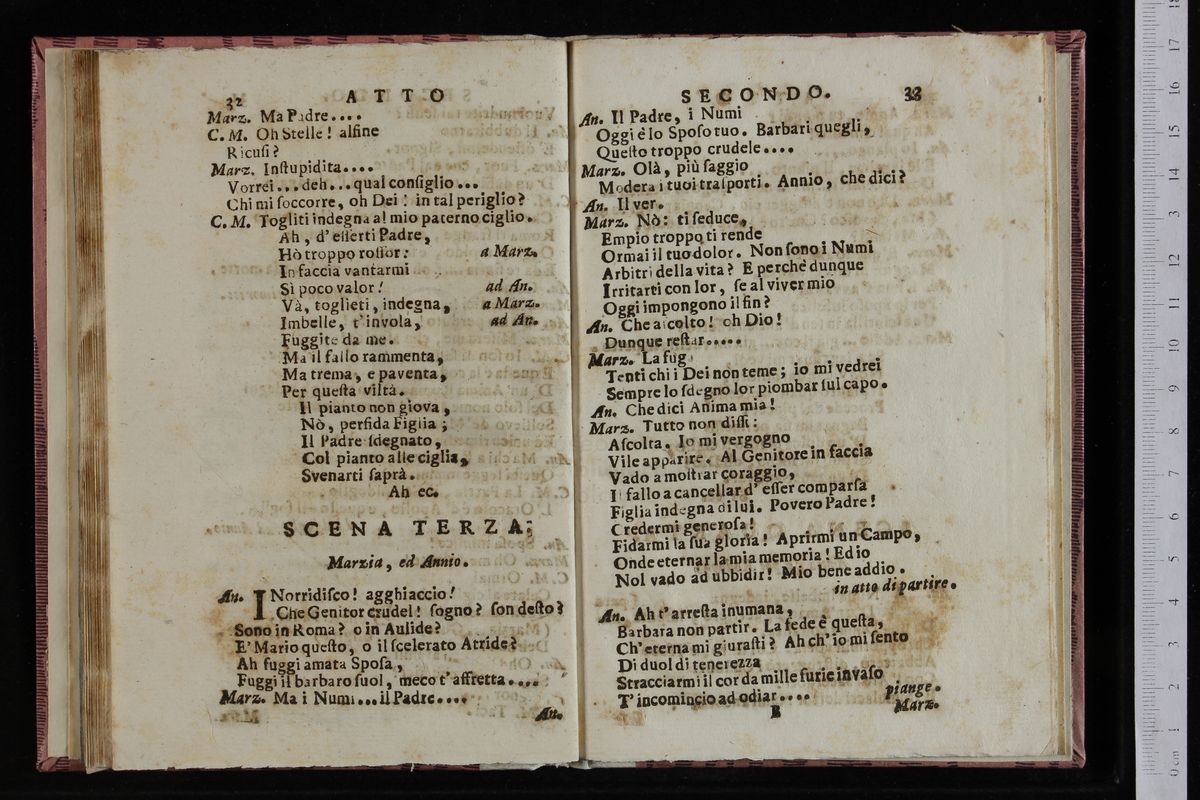 32 ATTO
Marz. Ma Padre....
C. M. Oh Stelle! alfine
Ricuſi?
Marz. Inſtupidita....
Vorrei...deh...qual conſiglio...
Chi mi ſoccorre, oh Dei! in tal periglio?
C. M. Togliti indegna al mio paterno ciglio.
Ah, d'eſſerti Padre,
Hò troppo roſſor: a Marz.
In faccia vantarmi
Sì poco valor! ad An.
Và, toglieti, indegna, a Marz.
Imbelle, t'invola, ad An.
Fuggite da me.
Ma il fallo rammenta,
Ma trema, e paventa,
Per queſta viltà.
Il pianto non giova,
Nò, perfida Figlia;
Il Padre ſdegnato,
Col pianto alle ciglia,
Svenarti ſaprà.
Ah ec.
SCENA TERZA.
Marzia, ed Annio.
An. INorridiſco! agghiaccio!
Che Genitor crudel! ſogno? ſon deſto?
Sono in Roma? o in Aulide?
E' Mario queſto, o il ſcelerato Atride?
Ah fuggi amata Spoſa,
Fuggi il barbaro ſuol, meco t'affretta....
Marz. Ma i Numi...il Padre....
An.
SECONDO. 33
An. Il Padre, i Numi
Oggi è lo Spoſo tuo. Barbari quegli,
Queſto troppo crudele....
Marz. Olà, più ſaggio
Modera i tuoi traſporti. Annio, che dici?
An. Il ver.
Marz. Nò: ti ſeduce,
Empio troppo ti rende
Ormai il tuo dolor. Non ſono i Numi
Arbitri della vita? E perchè dunque
Irritarti con lor, ſe al viver mio
Oggi impongono il fin?
An. Che aſcolto! oh Dio!
Dunque reſtar.....
Marz. La fug
Tenti chi i Dei non teme; io mi vedrei
Sempre lo ſdegno lor piombar ſul capo.
An. Che dici Anima mia!
Marz. Tutto non diſſi:
Aſcolta. Io mi vergogno
Vile apparire. Al Genitore in faccia
Vado a moſtrar coraggio,
Il fallo a cancellar d' eſſer comparſa
Figlia indegna di lui. Povero Padre!
Credermi generoſa!
Fidarmi la ſua gloria! Aprirmi un Campo,
Onde eternar la mia memoria! Ed io
Nol vado ad ubbidir! Mio bene addio.
in atto di partire.
An. Ah t'arreſta inumana,
Barbara non partir. La fede è queſta,
Ch'eterna mi giuraſti? Ah ch'io mi ſento
Di duol di tenerezza
Stracciarmi il cor da mille furie invaſo
T'incomincio ad odiar.... piange.
B Marz.